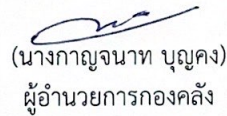 (นางกาญจนาท บุญคง)
ผู้อำนวยการกองคลัง